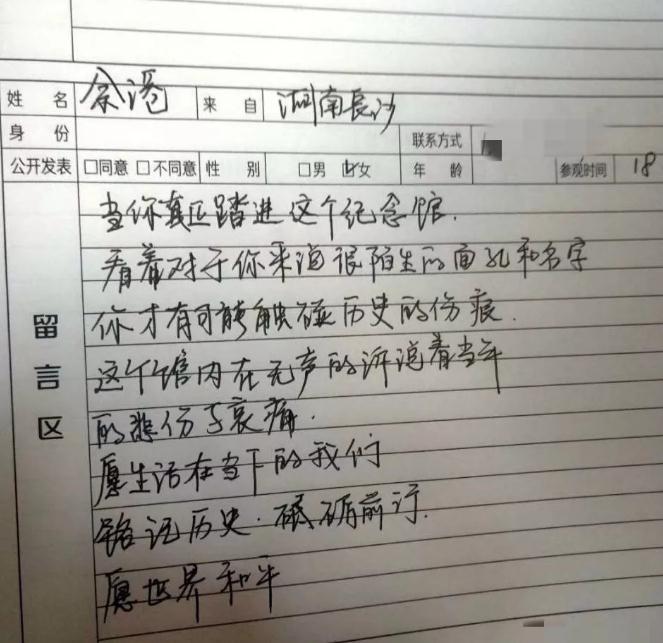 姓名 余港 来自 湖南長沙
身份 联系方式
公开发表 □同意 □不同意 性别 □男 ☑女 年龄 参观时间 18
留言区
当你真正踏进这个纪念馆.
看着对于你来说很陌生的面孔和名字
你才有可能触碰历史的伤痕.
这个馆内在无声的诉说着当年
的悲伤与哀痛.
愿生活在当下的我们
铭记历史.砥砺前行.
愿世界和平